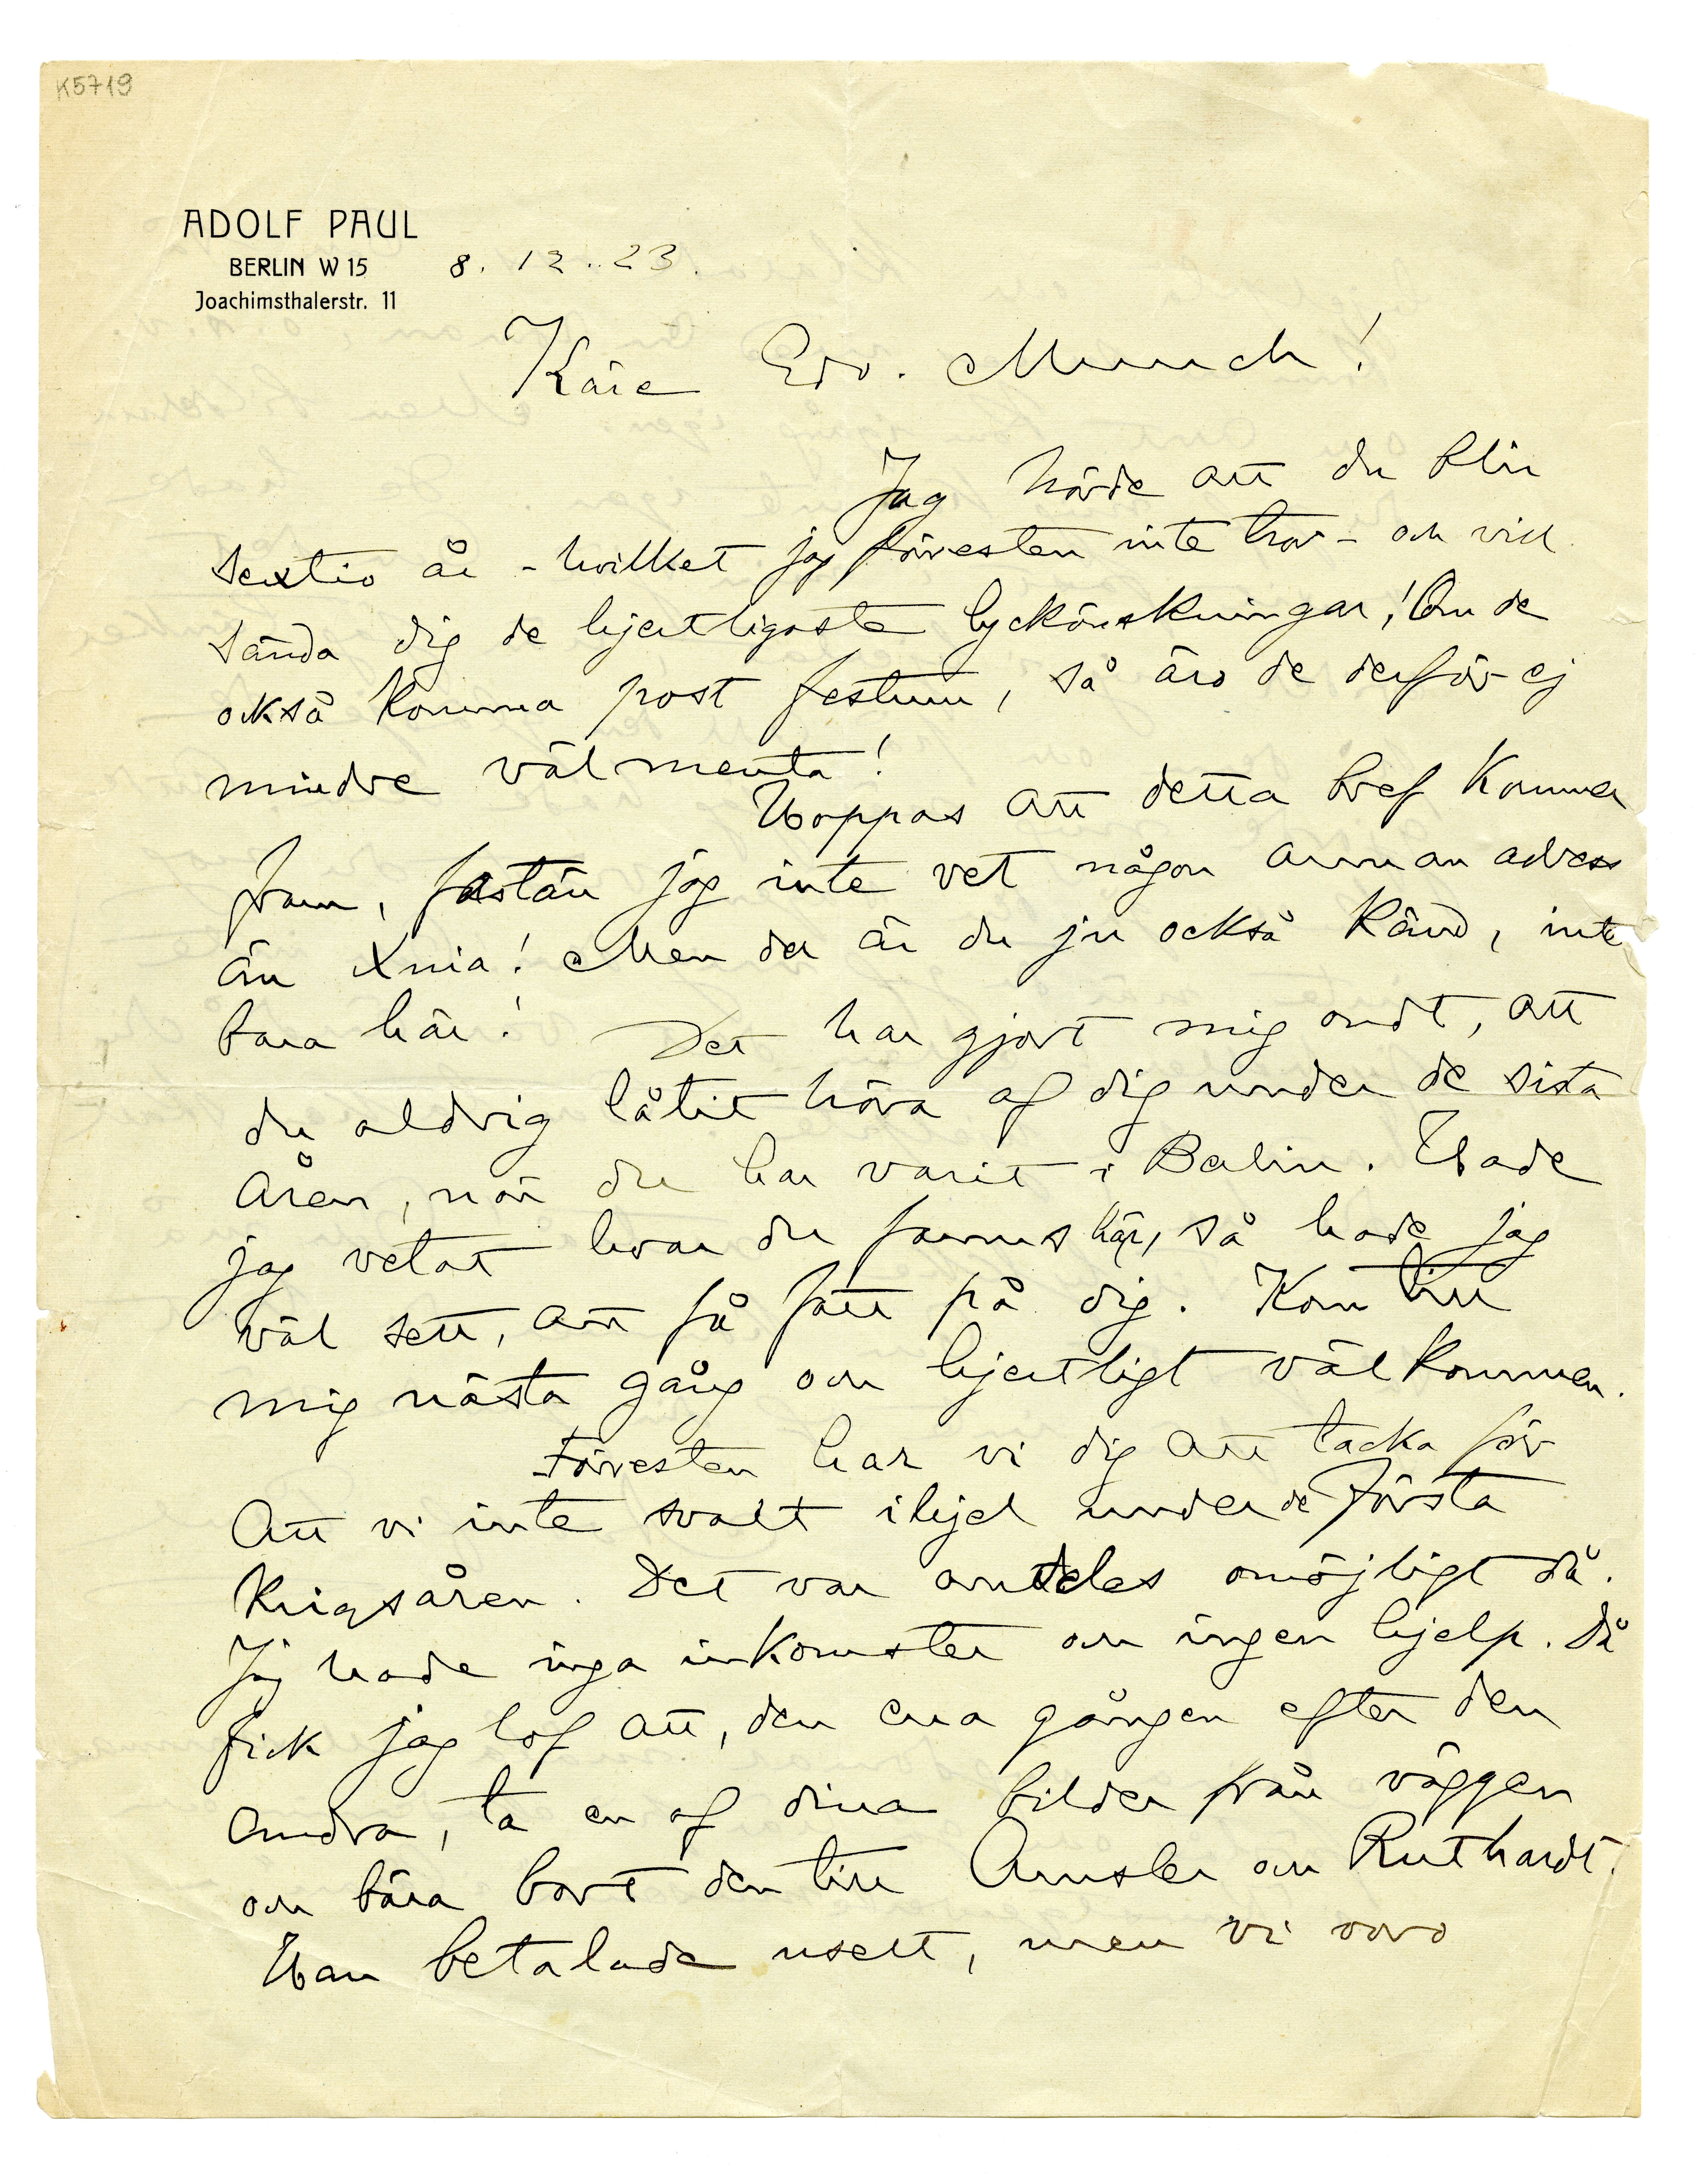 K5719
ADOLF PAUL
BERLIN W 15 8. 12. 23.
Joachimsthalerstr. 11
Käre Edv. Munch!
Jag hörde att du blir
sextio år - hvilket jag förresten inte tror - och vill
sända dig de hjertligaste lyckönskningar! Om de
också komma post festum, så äro de derför ej
mindre välmenta!
Hoppas att detta bref kommer
fram, fastän jag inte vet någon annan adress
än Xnia! Men der är du ju också känd, inte
bara här!
Det har gjort mig ondt, att
du aldrig låtit höra af dig under de sista
åren, när du har varit i Berlin. Hade
jag vetat hvar du fanns här, så hade jag
väl sett, att få fatt på dig. Kom till
mig nästa gång och hjertligt välkommen.
Förresten har vi dig att tacka för
att vi inte svalt ihjel under de första
krigsåren. Det var alldeles omöjligt då.
Jag hade inga inkomster och ingen hjelp. Då
fick jag lof att, den ena gången efter den
andra, ta en af dina bilder från väggen
och bära bort den till Amsler och Ruthardt.
Han betalade uselt, men vi voro